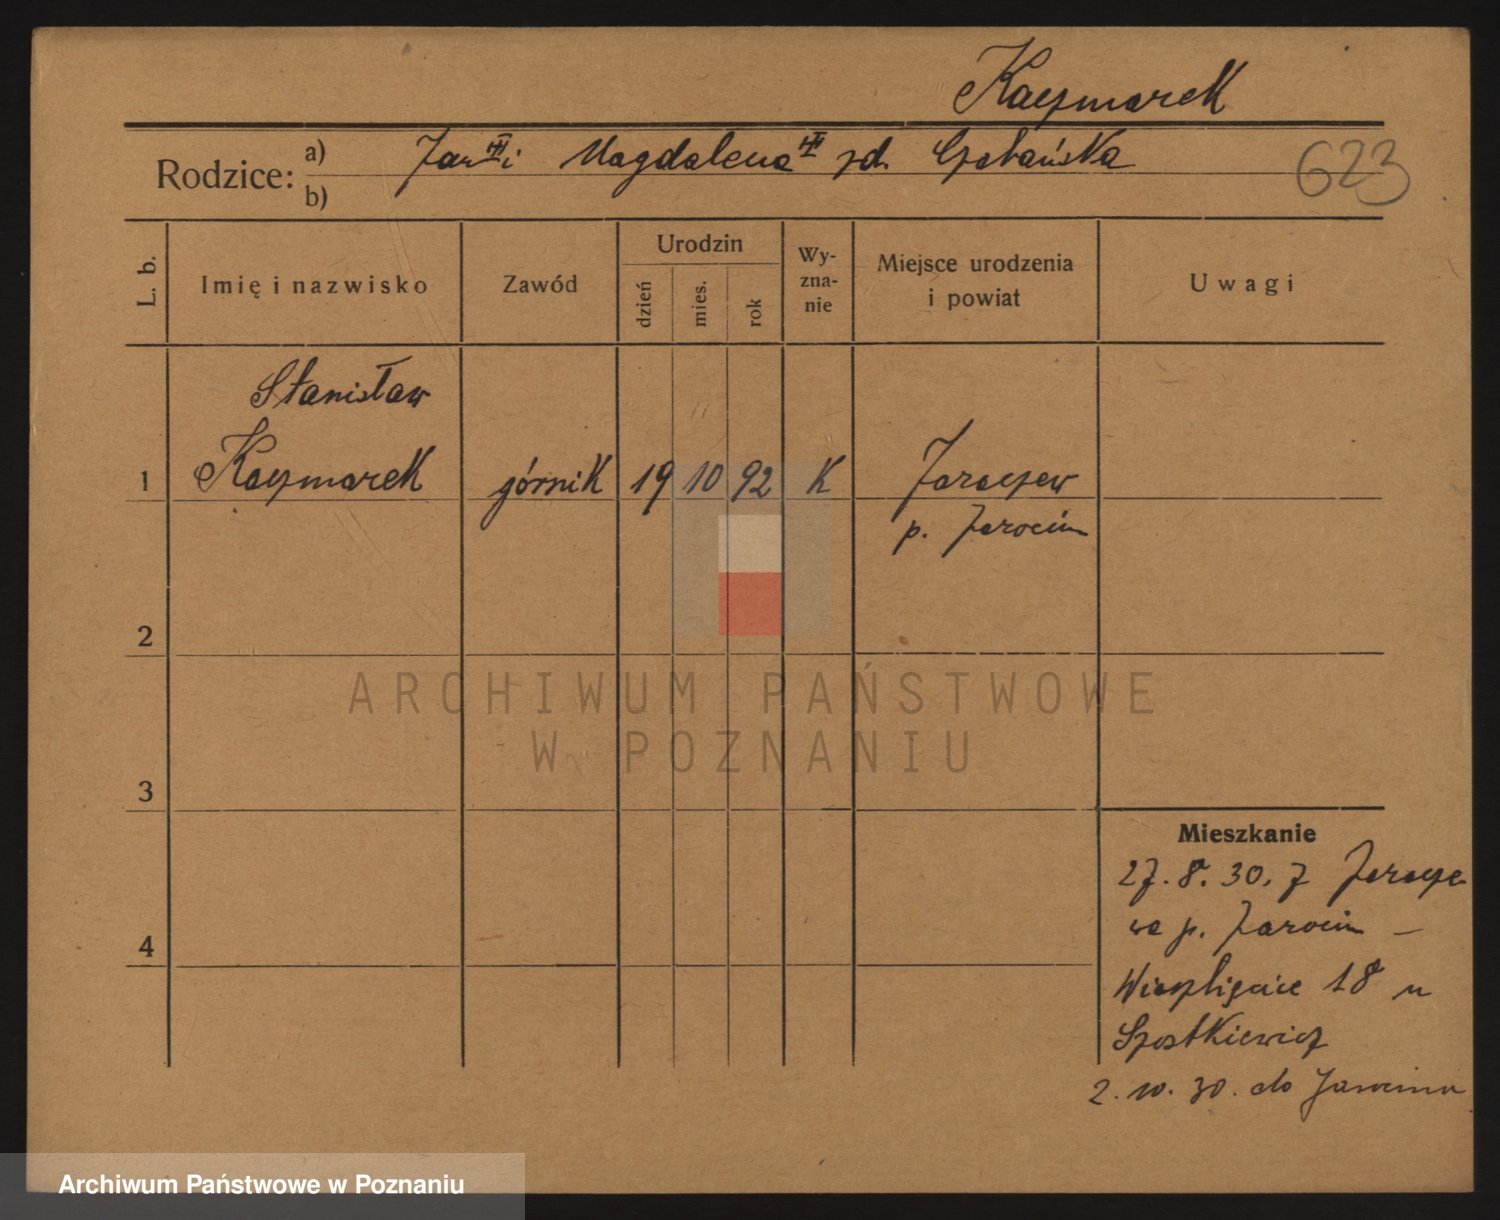 Kaczmarek
Rodzice: a) Jan i Magdalena zd.
b)
623
L. b.
Imię i nazwisko
Zawód
Urodzin
dzień
mies.
rok
Wy-
zna-
nie
Miejsce urodzenia
i powiat
Uwagi
Stanisław
1 Kaczmarek górnik 19 10 92 K Jaraczew
p. Jarocin
2
ARCHIWUM PAŃSTWOWE
W POZNANIU
3
Mieszkanie
27. 8. 30. z Jaracze
wa p. Jarocin –
4
18 u
Szostkiewicz
2. 10. 30. do Jarocina
Archiwum Państwowe w Poznaniu